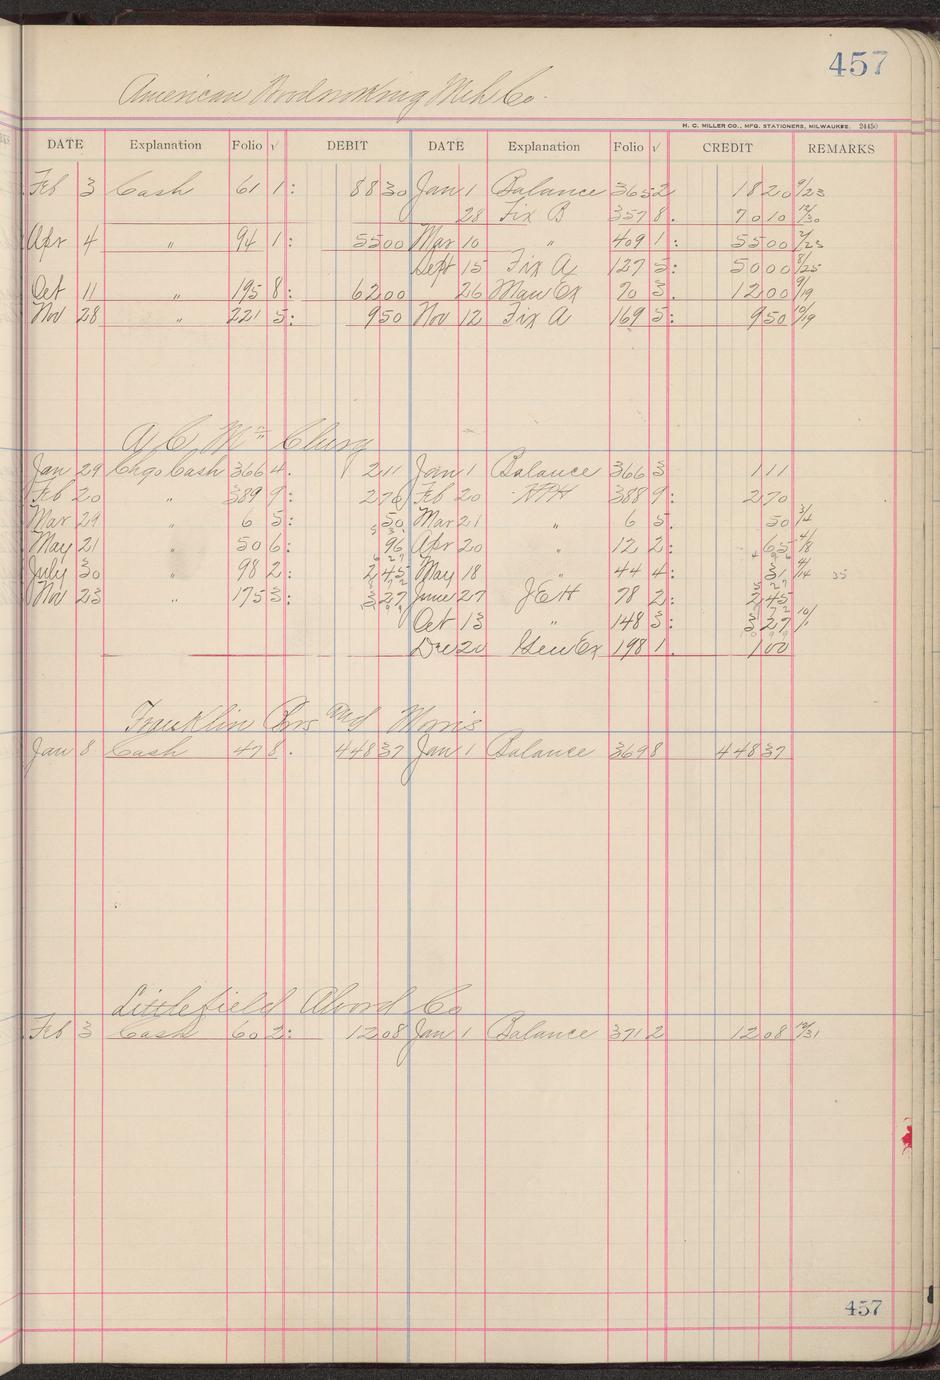 457
American Woodworking Mch Co.
H. C. MILLER CO., MFG. STATIONERS, MILWAUKEE. 24450
DATE Explanation Folio √ DEBIT DATE Explanation Folio √ CREDIT REMARKS
Feb 3 Cash 61 1: 88 30 Jan 1 Balance 365 2 18 20 9/23
28 Fix B 357 8. 70 10 12/30
Apr 4 " 94 1: 55 00 Mar 10 " 409 1: 55 00 2/23
Sept 15 Fix A 127 5: 50 00 8/25
Oct 11 " 195 8: 62 00 26 Man Ex 70 3. 12 00 9/19
Nov 28 " 221 5: 9 50 Nov 12 Fix A 169 5: 9 50 10/19
A C Mc Clurg
Jan 29 Chgo Cash 366 4. 2 11 Jan 1 Balance 366 3 1 11
Feb 20 " 389 9: 2 70 Feb 20 388 9: 2 70
Mar 29 " 6 5: 50 Mar 21 " 6 5. 50 3/4
May 21 " 50 6: 96 Apr 20 " 12 2: 65 4/18
July 30 " 98 2: 2 45 May 18 " 44 4: 31 4/14 35
Nov 23 " 175 3: 3 27 June 27 JEH 78 2: 2 45
Oct 13 " 148 3: 3 27 10/1
Dec 20 Gen Ex 198 1. 1 00
Franklin Bros and Morris
Jan 8 Cash 47 8. 448 37 Jan 1 Balance 369 8 448 37
Littlefield Alvord Co
Feb 3 Cash 60 2: 12 08 Jan 1 Balance 371 2 12 08 12/31
457